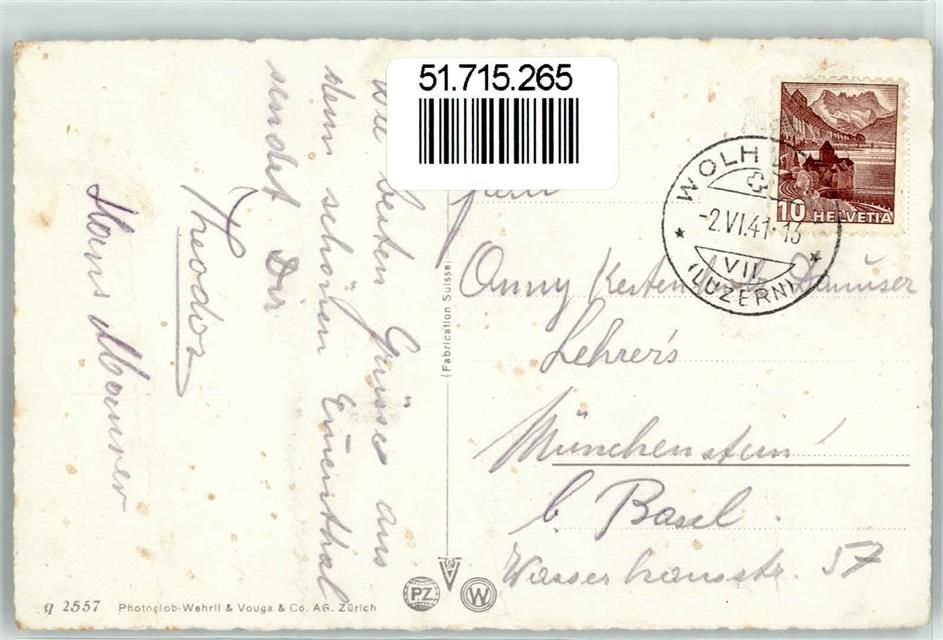 51.715.265
besten Grüsse aus
dem schönen Emmithal
sendet Dir
Theodor
Hans
10 HELVETIA
WOLH
-2.VI.41-13
VII
(LUZERN)
Anny
Lehrer's
Münchenstein!
b. Basel.
Wasserhausstr. 57
(Fabrication Suisse)
q 2557 Photoglob-Wehrli & Vouga & Co. AG. Zürich
PZ
V
W